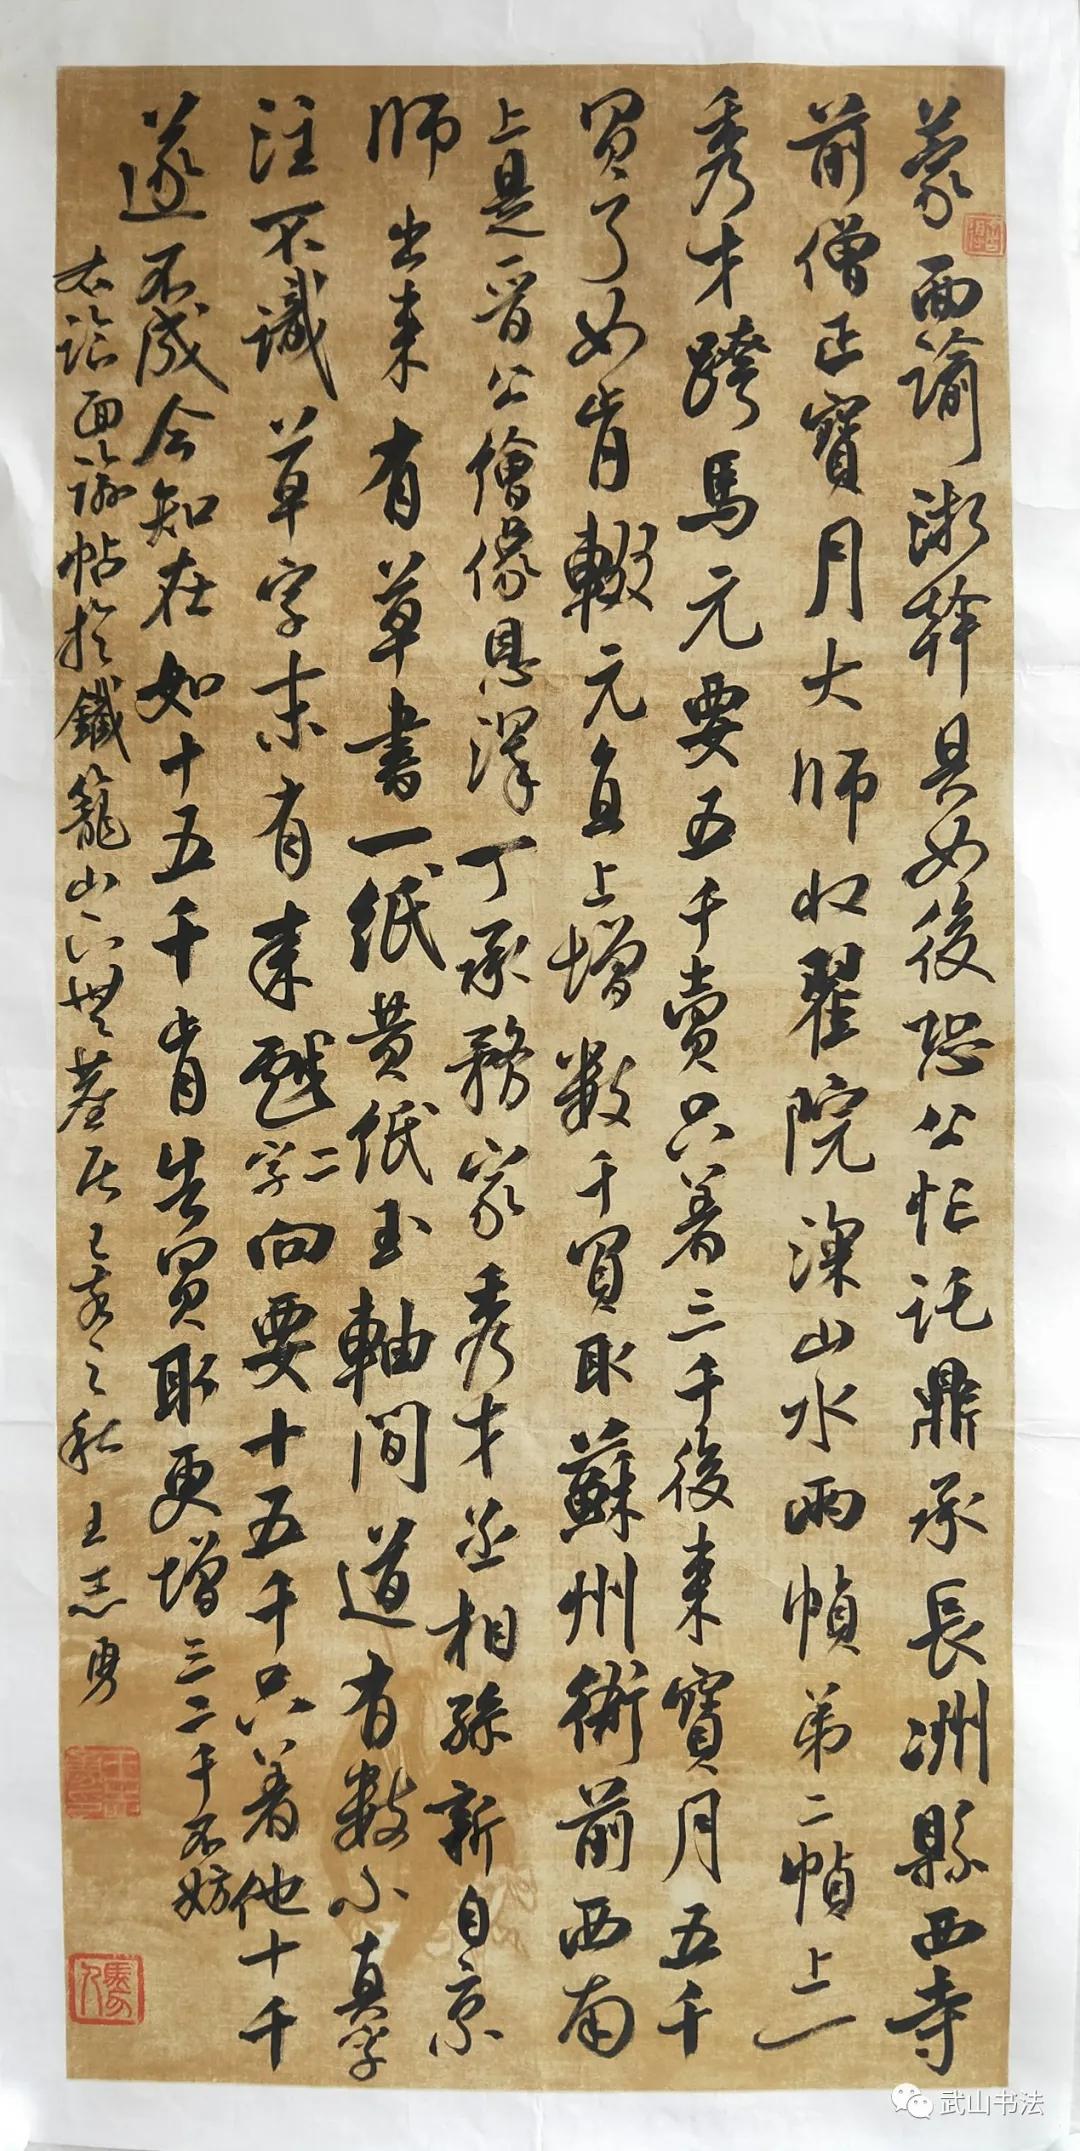 蒙面諭浙幹具如後恐公忙託鼎承長洲縣西寺
前僧正寶月大師收翟院深山水兩幀弟二幀上一
秀才跨馬元要五千賣只着三千後來寶月五千
買了如肯輟元直上增数千買取蘇州衙前西南
上是晋公僧像恩澤丁承務家秀才丞相孫新自京
師出來有草書一紙黄紙玉軸間道有數小真字
注不識草字末有來戲二字向要十五千只着他十千
遂不成今知在如十五千肯告買取更增三二千不妨
右臨面諭帖於鐵籠山下無荃居己亥之秋王志勇
武山书法